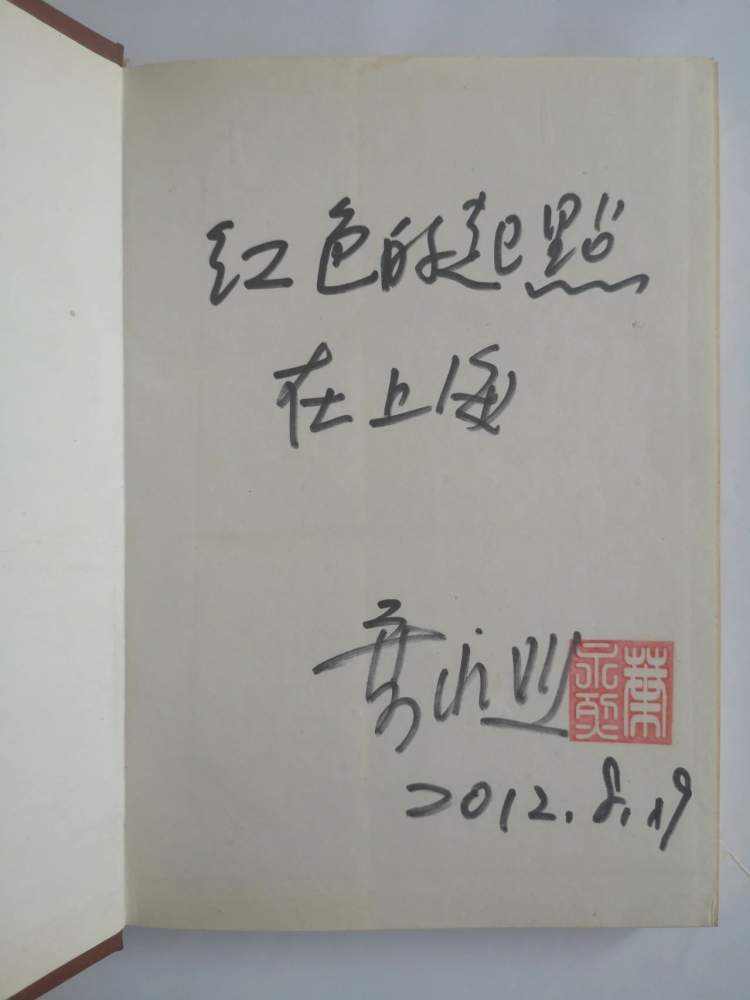 红色的起點
在上海
葉永烈
葉永烈
2012.8.19